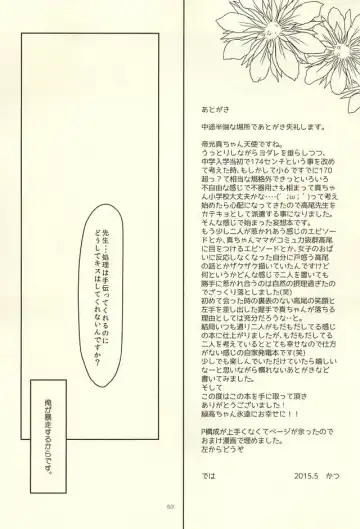 あとがき
中途半端な場所であとがき失礼します。
帝光真ちゃん天使ですね。
うっとりしながらヨダレを垂らしつつ、
中学入学当初で174センチという事を改め
て考えた時、もしかして小6ですでに170
超っ？て相当な規格外できっといろいろ
不自由な感じで不器用さも相まって真ちゃ
ん小学校大丈夫かな…(´;ω;`)って考え
始めたら心配になってきたので高尾先生を
カテキョとして派遣する事になりました。
そんな感じで始まった妄想本です。
もう少し二人が惹かれあう感じのエピソー
ドとか、真ちゃんママがコミュ力抜群高尾
に目をつけるエピソードとか、女子のおっ
ぱいに反応しなくなった自分に戸惑う高尾
の話とかザクザク描いていたんですけど
何というかどんな感じで二人を置いても
勝手に惹かれ合うのは自然の摂理過ぎたの
でざっくり落としました(笑)
初めて会った時の裏表のない高尾の笑顔と
左手を差し出した握手で真ちゃんが落ちる
理由としては充分だろうな…と。
結局いつも通り二人がもだもだしてる感じ
の本に仕上がりましたが、もだもだしてる
二人を考えているととても幸せなので仕方
がない感じの自家発電本です(笑)
少しでも楽しんでいただけていたら嬉しい
な…と思いながら慣れないあとがきなど
書いてみました。
そして
この度はこの本を手に取って頂き
ありがとうございました！
緑高ちゃん永遠にお幸せに！！
P構成が上手くなくてページが余ったので
おまけ漫画で埋めました。
左からどうぞ
では　2015.5　かつ
先生…処理は手伝ってくれるのに
どうしてキスはしてくれないんですか？
俺が暴走するからです。
53